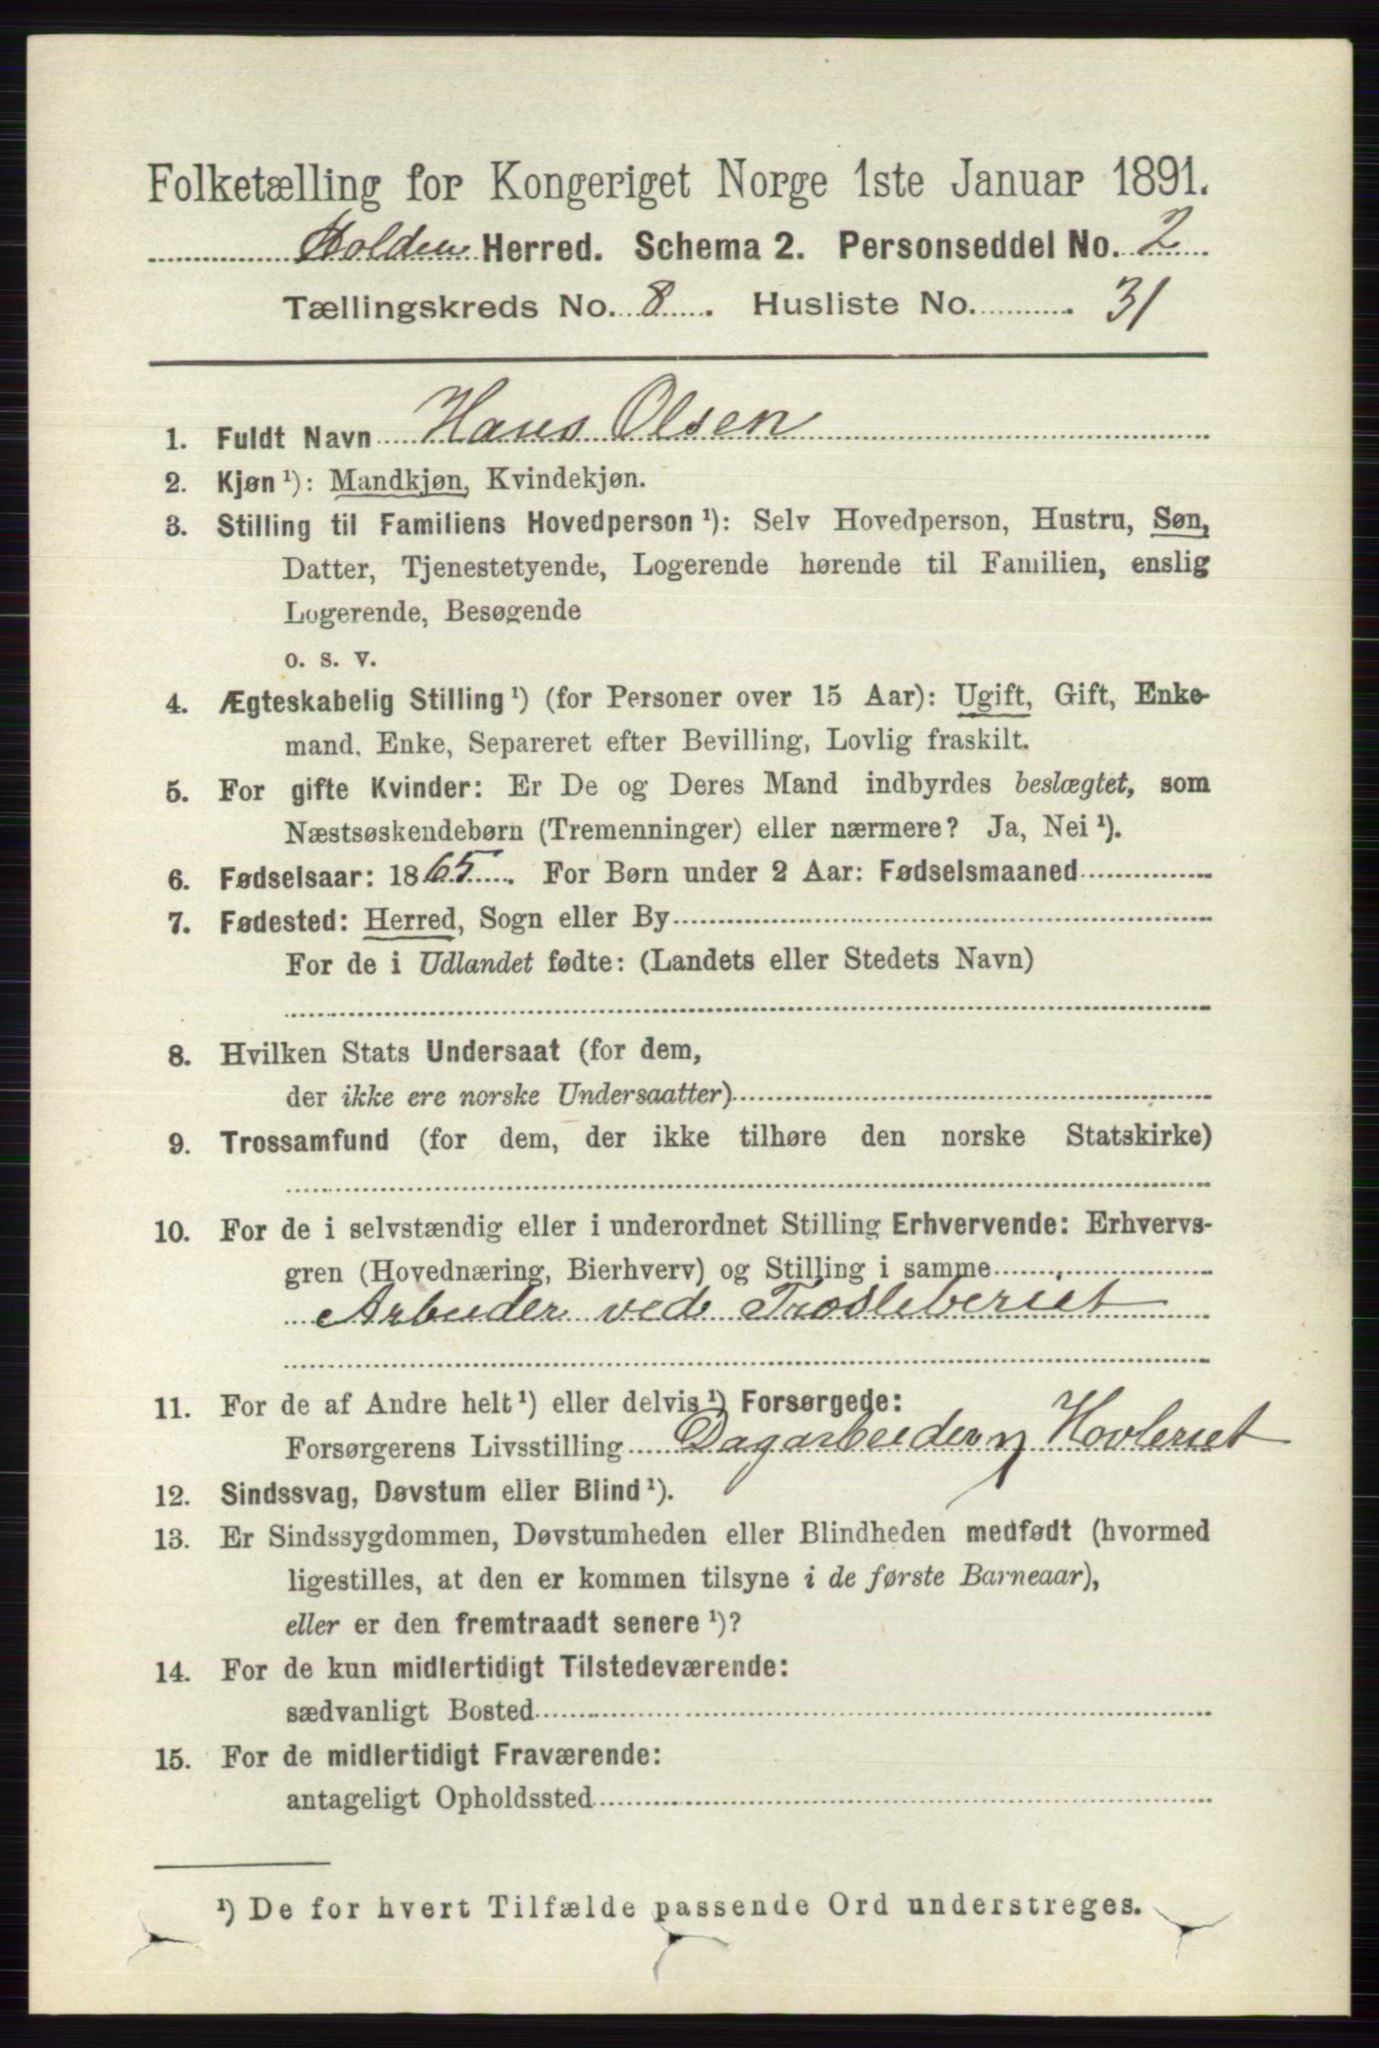 Folketælling for Kongeriget Norge 1ste Januar 1891.
Holden Herred. Schema 2. Personseddel No. 2
Tællingskreds No. 8. Husliste No. 31
1. Fuldt Navn Hans Olsen
2. Kjøn ¹): Mandkjøn, Kvindekjøn.
3. Stilling til Familiens Hovedperson ¹): Selv Hovedperson, Hustru, Søn,
Datter, Tjenestetyende, Logerende hørende til Familien, enslig
Logerende, Besøgende
o. s. v.
4. Ægteskabelig Stilling ¹) (for Personer over 15 Aar): Ugift, Gift, Enke-
mand, Enke, Separeret efter Bevilling, Lovlig fraskilt.
5. For gifte Kvinder: Er De og Deres Mand indbyrdes beslægtet, som
Næstsøskendebørn (Tremenninger) eller nærmere? Ja, Nei ¹).
6. Fødselsaar: 1865. For Børn under 2 Aar: Fødselsmaaned
7. Fødested: Herred, Sogn eller By
For de i Udlandet fødte: (Landets eller Stedets Navn)
8. Hvilken Stats Undersaat (for dem,
der ikke ere norske Undersaatter)
9. Trossamfund (for dem, der ikke tilhøre den norske Statskirke)
10. For de i selvstændig eller i underordnet Stilling Erhvervende: Erhvervs-
gren (Hovednæring, Bierhverv) og Stilling i samme
Arbeider ved Træsliberiet
11. For de af Andre helt ¹) eller delvis ¹) Forsørgede:
Forsørgerens Livsstilling Dagarbeider Høvleriet
12. Sindssvag, Døvstum eller Blind ¹).
13. Er Sindssygdommen, Døvstumheden eller Blindheden medfødt (hvormed
ligestilles, at den er kommen tilsyne i de første Barneaar),
eller er den fremtraadt senere ¹)?
14. For de kun midlertidigt Tilstedeværende:
sædvanligt Bosted
15. For de midlertidigt Fraværende:
antageligt Opholdssted
¹) De for hvert Tilfælde passende Ord understreges.